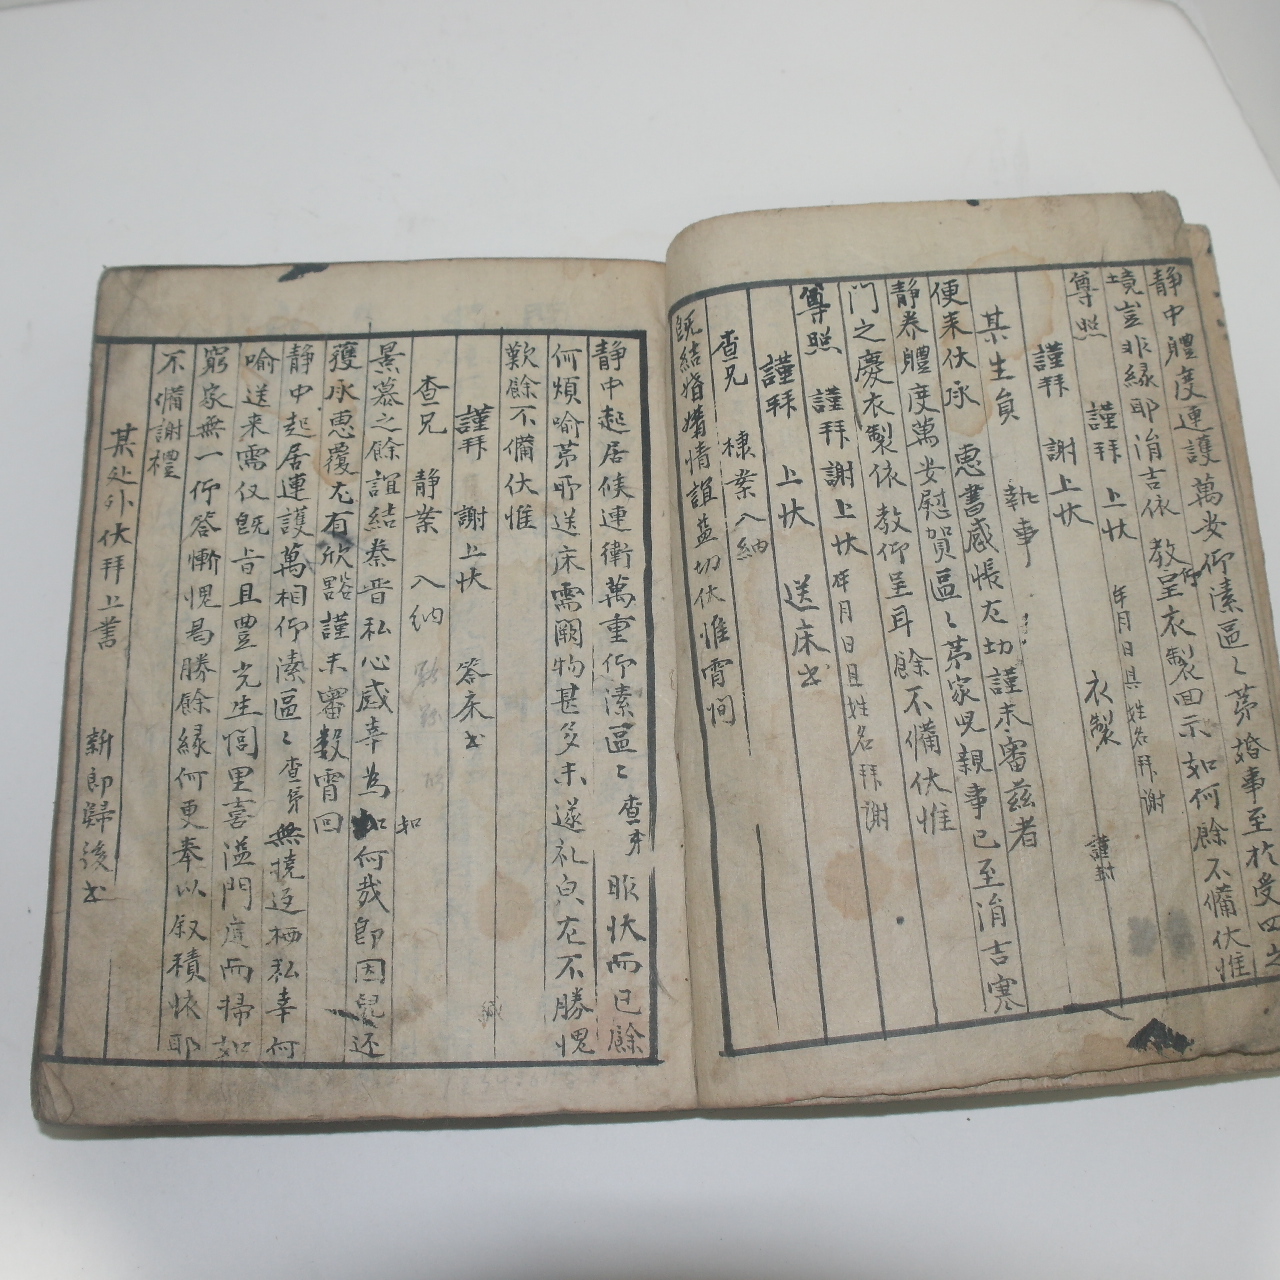 靜中體度連護萬安仰溸區〻苐婚事至於受四之
境豈非緣耶涓吉依 教呈衣製回示如何餘不備伏惟
尊照 謹拜 上狀 年月日具姓名拜谢
謹拜 謝上狀 衣製 謹封
某生員 執事
便来伏承 惠書感悵左切謹未審兹者
靜养體度萬安慰賀區〻苐家児親事已至涓吉寒
門之慶衣製依 教仰呈耳 餘不備伏惟
尊照 謹拜 謝上狀 年月日且姓名拜谢
謹拜 上狀 送床書
查兄 棣案入納
既結婚媾情誼益切伏惟霄間
靜中起居候連衛萬重仰溸區〻查弟 昨狀而已餘
何煩喻苐耶送床需闕物甚多未遂礼㒵左不勝愧
歎餘不備伏惟
謹拜 謝上狀 答床书
查兄 靜案 入納
景慕之餘誼結秦晋私心感幸為如何哉卽因兒还
獲承惠覆尤有欣豁謹未審数霄回
靜中起居連護萬相仰溸區〻查弟無撓逕栖私幸何
喻送来需仪既旨且豊光生閭里喜溢門庭而掃如
窮家無一仰答慚愧曷勝餘緣何更奉以叙積懐耶
不備謝禮
某处外伏拜上書 新郎歸後书